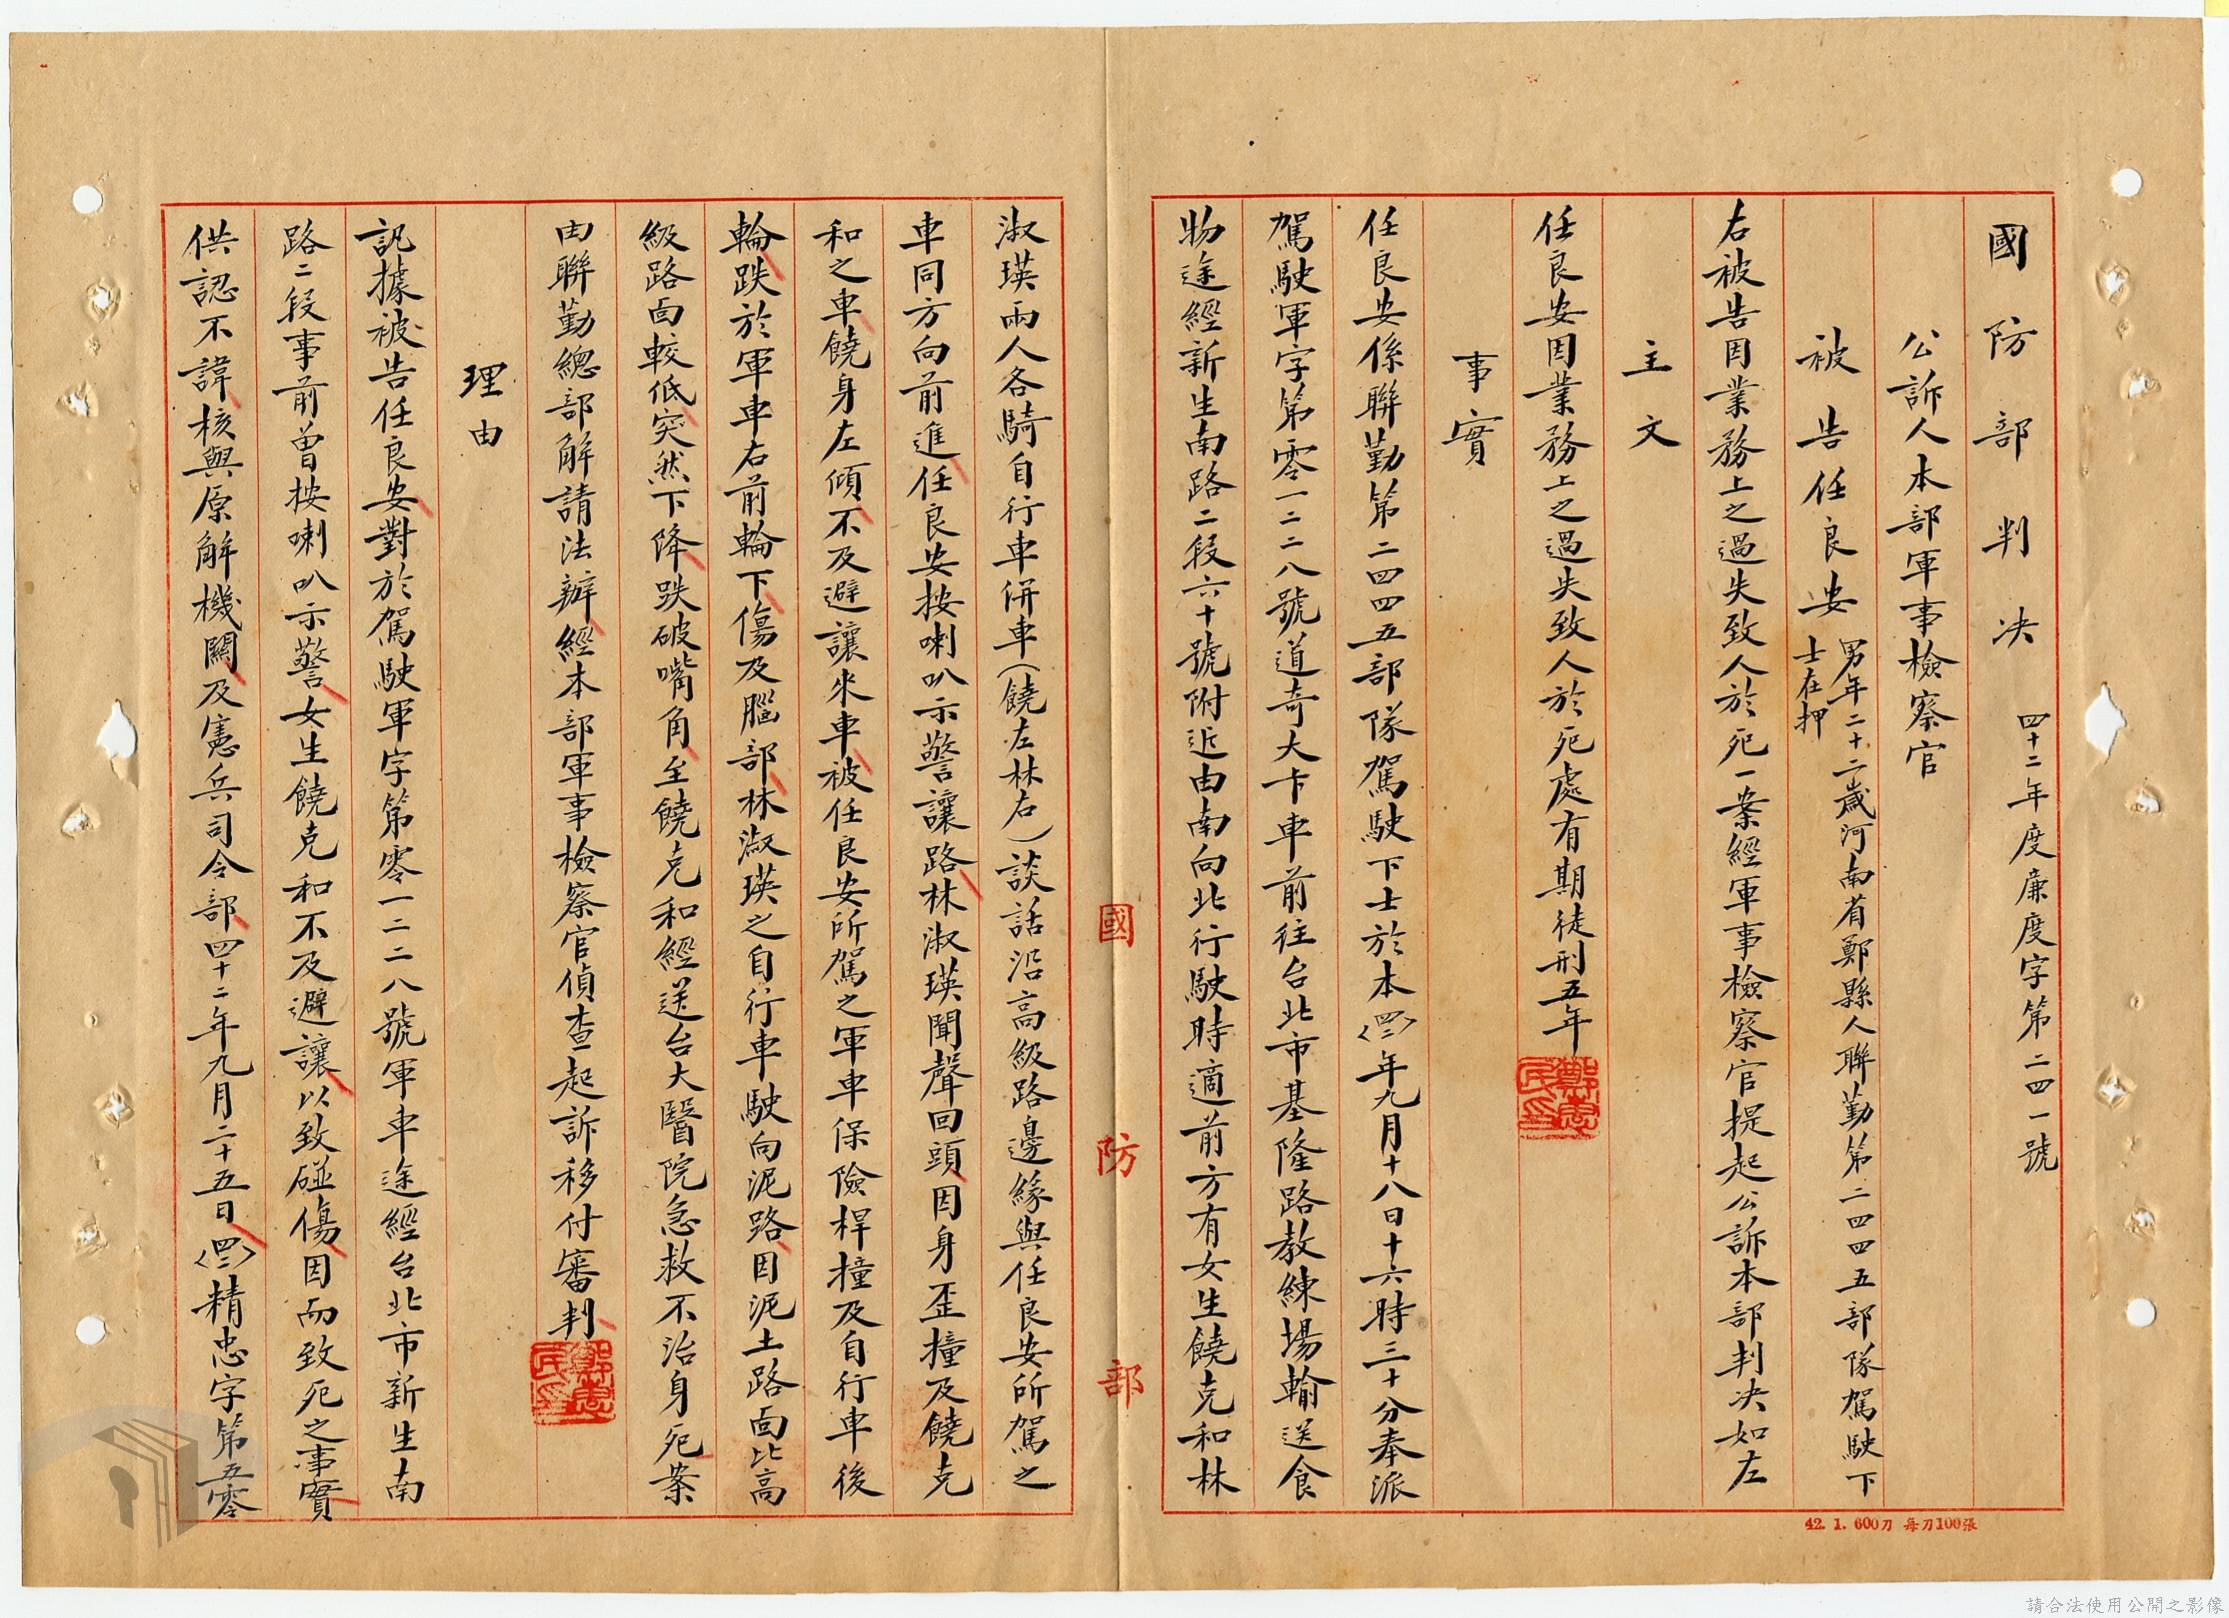 國防部判決 四十二年度廉度字第二四一號
公訴人本部軍事檢察官
被告任良安 男年二十二歲河南省鄭縣人聯勤第二四四五部隊駕駛下
士在押
右被告因業務上之過失致人於死一案經軍事檢察官提起公訴本部判決如左
主文
任良安因業務上之過失致人於死處有期徒刑五年
事實
任良安係聯勤第二四四五部隊駕駛下士於本〈四二〉年九月十八日十六時三十分奉派
駕駛軍字第零一二二八號道奇大卡車前往台北市基隆路教練場輸送食
物途經新生南路二段六十號附近由南向北行駛時適前方有女生饒克和林
國防部
淑瑛兩人各騎自行車併車(饒左林右)談話沿高級路邊緣與任良安所駕之
車同方向前進任良安按喇叭示警讓路林淑瑛聞聲回頭因身歪撞及饒克
和之車饒身左傾不及避讓來車被任良安所駕之軍車保險桿撞及自行車後
輪跌於軍車右前輪下傷及腦部林淑瑛之自行車駛向泥路因泥土路面比高
級路面較低突然下降跌破嘴角至饒克和經送台大醫院急救不治身死案
由聯勤總部解請法辦經本部軍事檢察官偵查起訴移付審判
理由
訊據被告任良安對於駕駛軍字第零一二二八號軍車途經台北市新生南
路二段事前曾按喇叭示警女生饒克和不及避讓以致碰傷因而致死之事實
供認不諱核與原解機關及憲兵司令部四十二年九月二十五日〈四二〉精忠字第五零
42.1.600刀 每刀100張
請合法使用公開之影像